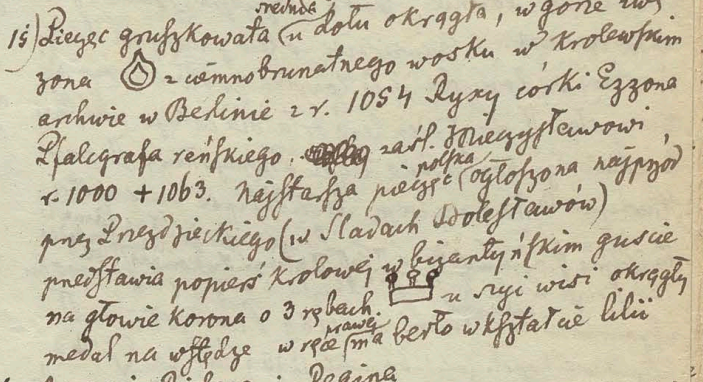 średnia
15) Pieczęć gruszkowata (u dołu okrągła, w górze zwę
żona z ciemnobrunatnego wosku w Królewskim
archiwie w Berlinie z r. 1054 Ryxy córki Ezzona
Pfalcgrafa reńskiego. zaśl. Mieczysławowi,
r. 1000 + 1063. Najstarsza pieczęć polska (ogłoszona najprzód
przez Przezdzieckiego (w Śladach Bolesławów)
przedstawia popiersie Królowej w bizantyńskim guście
na głowie korona o 3 zębach. u szyi wisi okrągły
medal na wstędze w ręce prawej ma berło w kształcie lilii
Regina